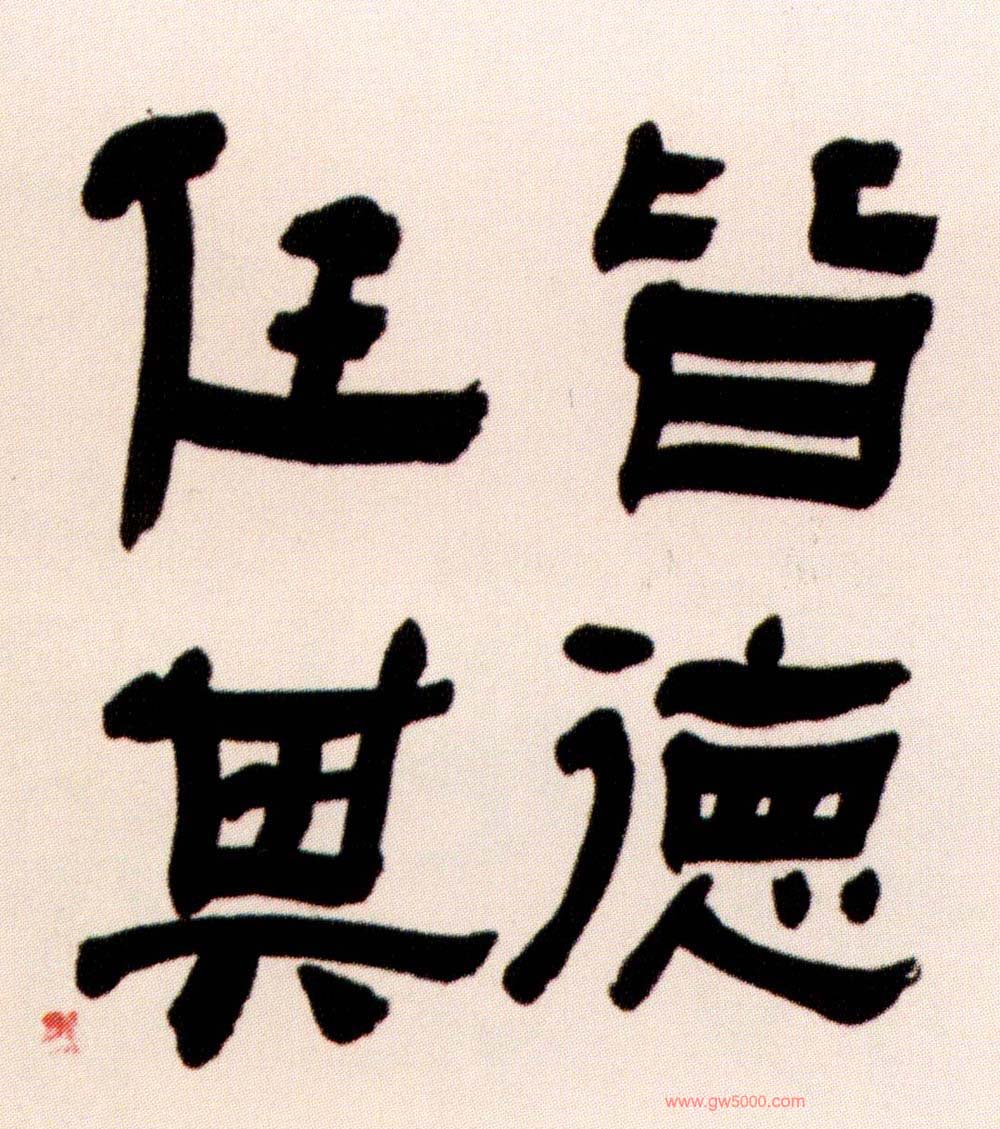 皆德
任其
www.gw5000.com